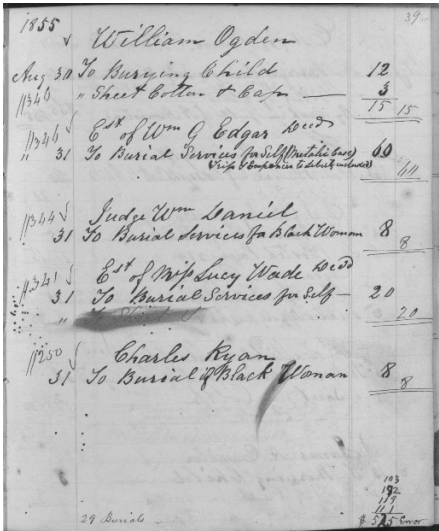 39
1855
William Ogden
Aug 30 To Burying Child 12
11346 " Sheet Cotton & Cap 3
15 15
11346 Est of Wm G Edgar Decd
" 31 To Burial Services for Self (Metalic Case) 60
Trip & Expences to Liberty included) 60
11344 Judge Wm Daniel
31 To Burial Services for Black Woman 8
8
11341 Est of Mrs Lucy Wade Decd
31 To Burial Services for Self 20
" 20
11250 Charles Ryan
31 To Burial of Black Woman 8
8
103
119
111
29 Burials $ 525 Error